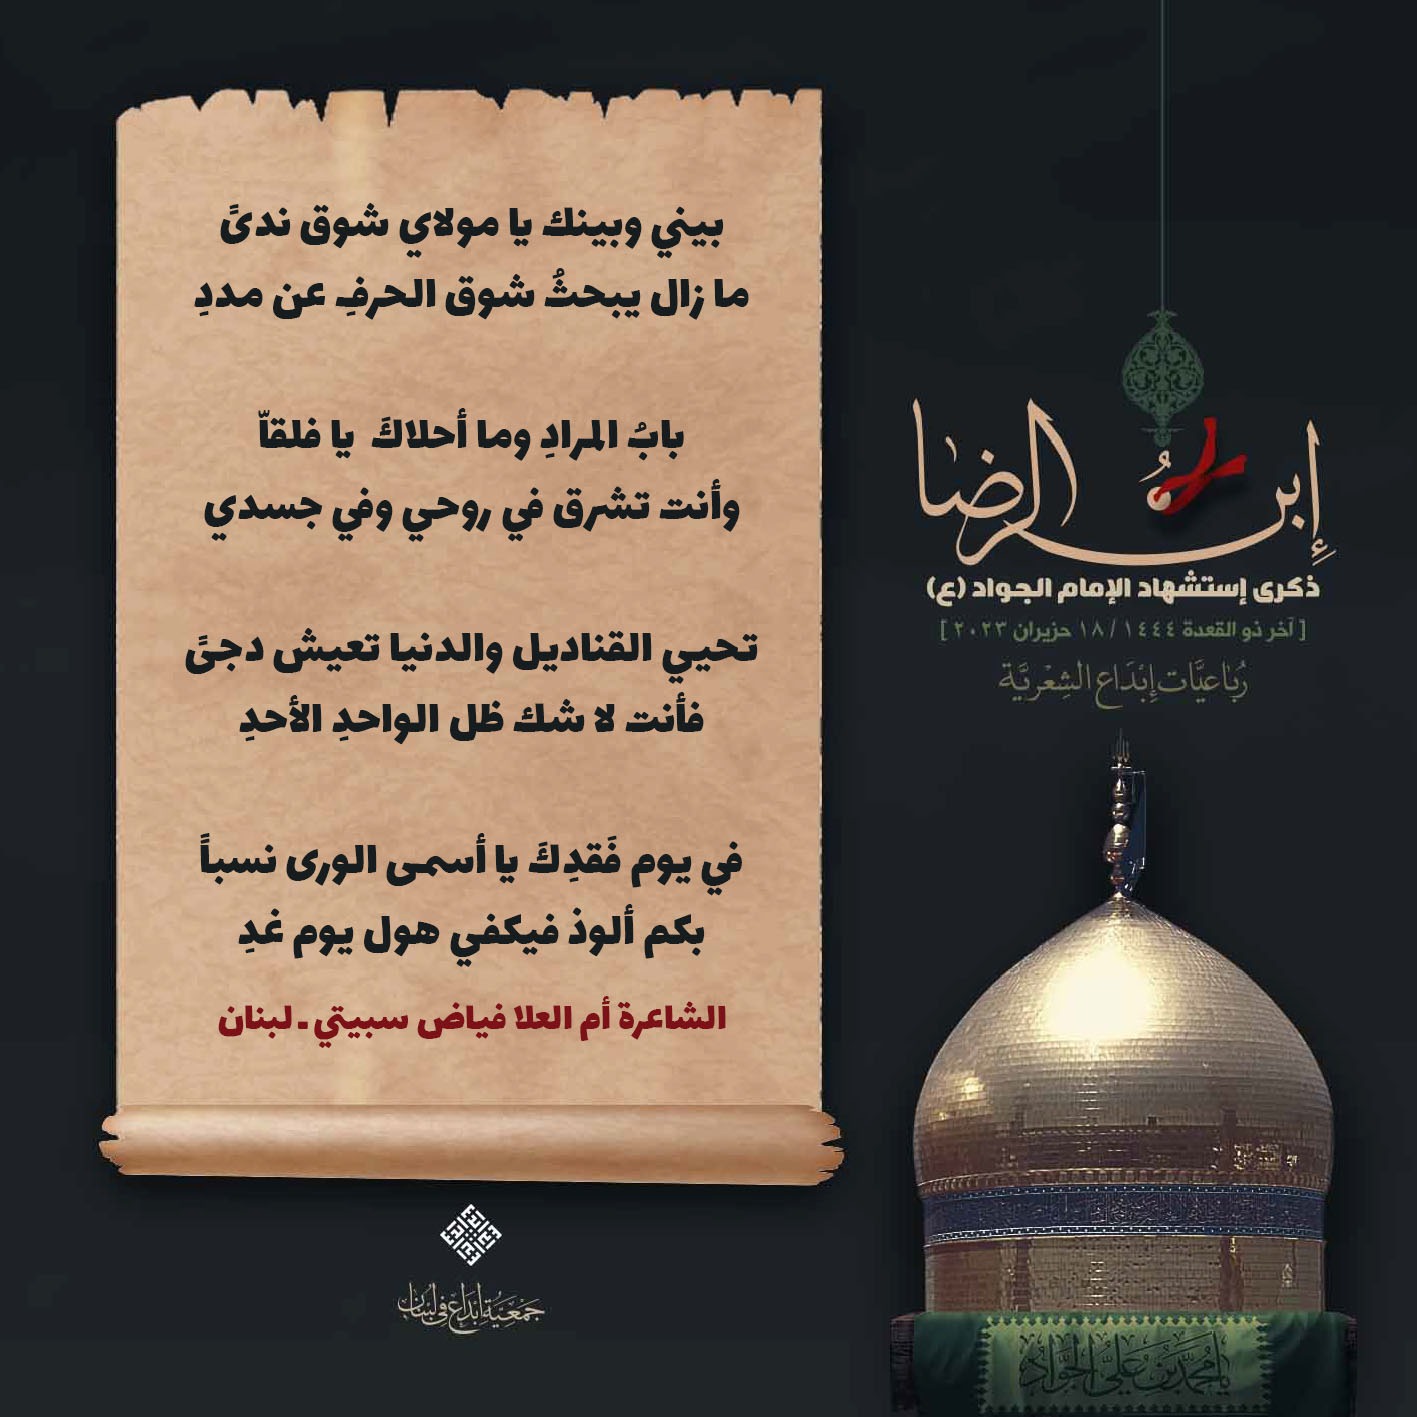 بيني وبينك يا مولاي شوق ندىً
ما زال يبحثُ شوق الحرفِ عن مددِ
بابُ المرادِ وما أحلاكَ يا فلقاّ
وأنت تشرق في روحي وفي جسدي
تحيي القناديل والدنيا تعيش دجىً
فأنت لا شك ظل الواحدِ الأحدِ
في يوم فَقدِكَ يا أسمى الورى نسباً
بكم ألوذ فيكفي هول يوم غدِ
الشاعرة أم العلا فياض سبيتي - لبنان
إبنُ الرضا
ذكرى إستشهاد الإمام الجواد (ع)
[ آخر ذو القعدة ١٤٤٤ / ١٨ حزيران ٢٠٢٣ ]
رُبَاعيَّات إبْدَاع الشِعْريَّة
جَمْعِيَّة إبْدَاع في لبْنَان
يا مُحَمَّد بن عَليّ الجَوَاد